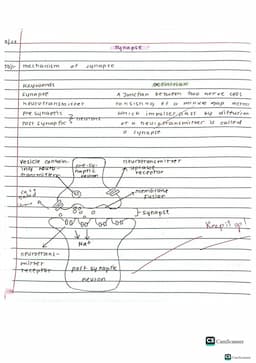 Synapse
Mechanism of synapse
Keywords
Definition
Synapse
Neurotransmitter
Pre synaptic
Post synaptic
neurons
A Junction between two nerve cells
consisting of a minute gap across
which impulses pass by diffusion
of a neurotransmitter is called
a synapse
vesicle contain-
ing neuro-
transmitters
pre-sy-
naptic
neuron
neurotransmitter
uptake
receptor
membrane
fusion
synapse
Na+
neurotrans-
mitter
receptor
post synaptic
neuron
Keep it up!
CS CamScanner
CS CamScanner